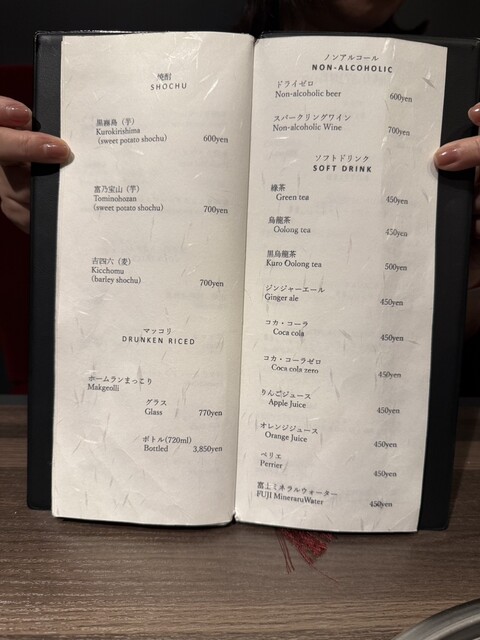 焼酎
SHOCHU
黒霧島（芋）
Kurokirishima
(sweet potato shochu) 600yen
富乃宝山（芋）
Tominohozan
(sweet potato shochu) 700yen
吉四六（麦）
Kicchomu
(barley shochu) 700yen
マッコリ
DRUNKEN RICED
ホームランまっこり
Makgeolli
グラス
Glass 770yen
ボトル(720ml)
Bottled 3,850yen
ノンアルコール
NON-ALCOHOLIC
ドライゼロ
Non-alcoholic beer 600yen
スパークリングワイン
Non-alcoholic Wine 700yen
ソフトドリンク
SOFT DRINK
緑茶
Green tea 450yen
烏龍茶
Oolong tea 450yen
黒烏龍茶
Kuro Oolong tea 500yen
ジンジャーエール
Ginger ale 450yen
コカ・コーラ
Coca cola 450yen
コカ・コーラゼロ
Coca cola zero 450yen
りんごジュース
Apple Juice 450yen
オレンジジュース
Orange Juice 450yen
ペリエ
Perrier 450yen
富士ミネラルウォーター
FUJI MineraruWater 450yen